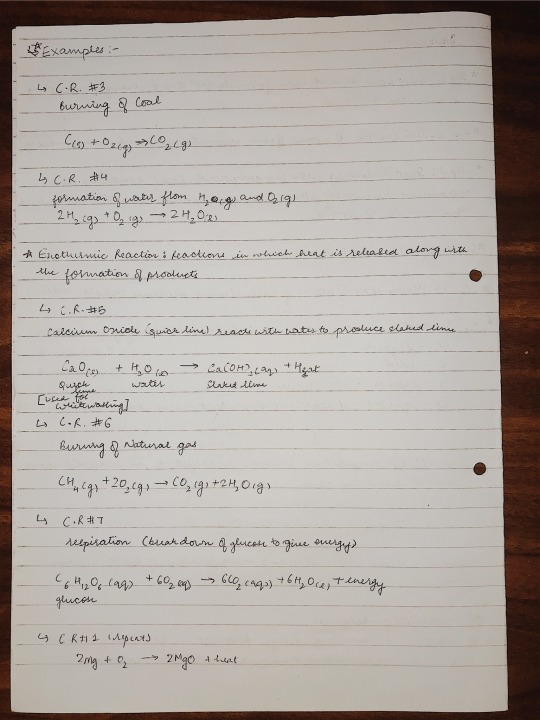 ☆ Examples :-
↳ C.R. #3
Burning of Coal
C(s) + O₂(g) → CO₂(g)
↳ C.R. #4
formation of water from H₂(g) and O₂(g)
2H₂(g) + O₂(g) → 2H₂O(l)
* Exothermic Reaction : Reactions in which heat is released along with
the formation of products
↳ C.R. #5
Calcium Oxide (quick lime) reacts with water to produce slaked lime
CaO(s) + H₂O(l) → Ca(OH)₂(aq) + Heat
Quick lime water slaked lime
[used for
whitewashing]
↳ C.R. #6
Burning of Natural gas
CH₄(g) + 2O₂(g) → CO₂(g) + 2H₂O(g)
↳ C.R #7
respiration (breakdown of glucose to give energy)
C₆H₁₂O₆(aq) + 6O₂(aq) → 6CO₂(aq) + 6H₂O(l) + energy
glucose
↳ C R #1 (repeats)
2Mg + O₂ → 2MgO + heat